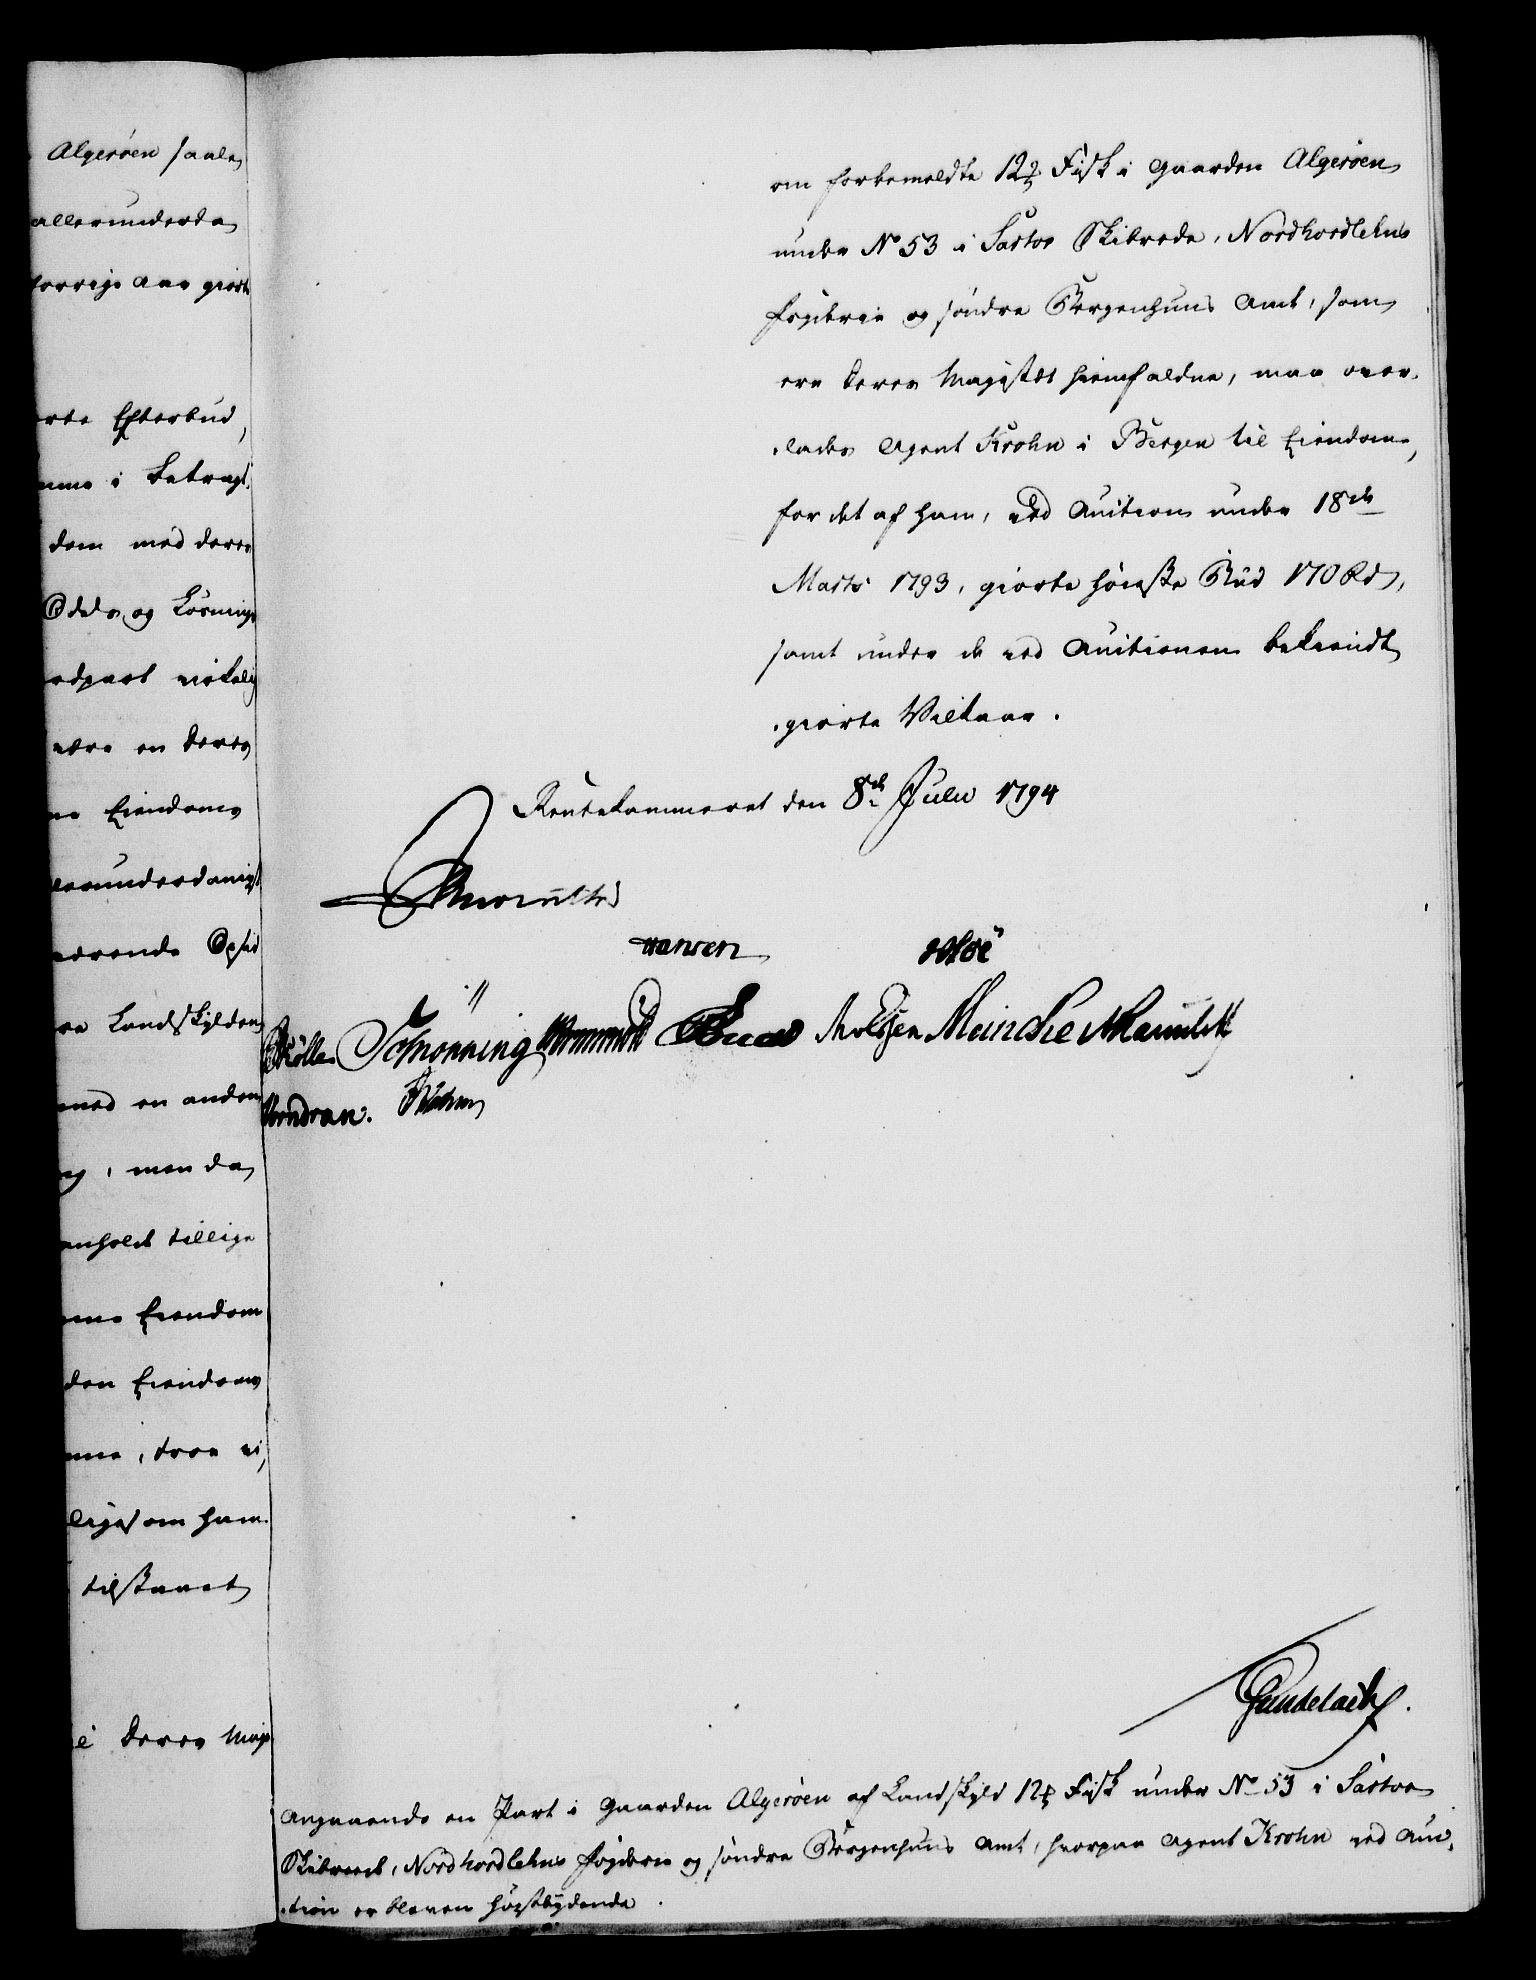 Algerøen saale
allerunderda
forrige Aar giorte
Efterbud,
i betragt
dem med deres
Odels og Løsnings
virkelig
være en deres
Eiendoms
lerunderdanigst
værende Opsid
Landskylden
med en anden
, men da
anholdt tillige
Eiendom
den Eiendoms
, troe vi,
ligesom ham
tilstaaet
deres Maje
om forbemeldte 12 Fisk i Gaarden Algerøen
under No 53 i Sartor Skibrede, Nordhordlehns
Fogderie og søndre Bergenhuus Amt, som
ere deres Majestæt hiemfaldne, maa over-
lades Agent Krohn i Bergen til Eiendom,
for det af ham, ved Auction under 18de
Marts 1793, giorte høieste Bud 170 Rd,
samt under de ved Auctionen bekiendt
giorte Vilkaar.
Rentekammeret den 8de Julii 1794
Hansen Hoë
Schønning Meincke
Vorndran.
Gundelach.
Angaaende en Part i Gaarden Algerøen af Landskyld 12 Fisk under No 53 i Sartor
Skibrede, Nordhordlehns Fogderie og søndre Bergenhuus Amt, hvorpaa Agent Krohn ved Auc-
tion er bleven høistbydende.